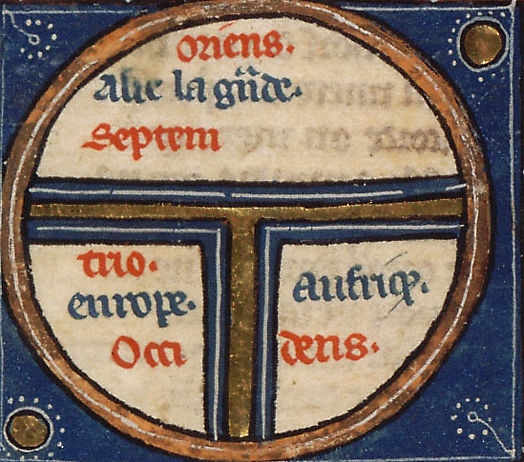 oriens.
Asie la gñde.
Septem
trio.
europe.
Aufriq̃.
Occi dens.